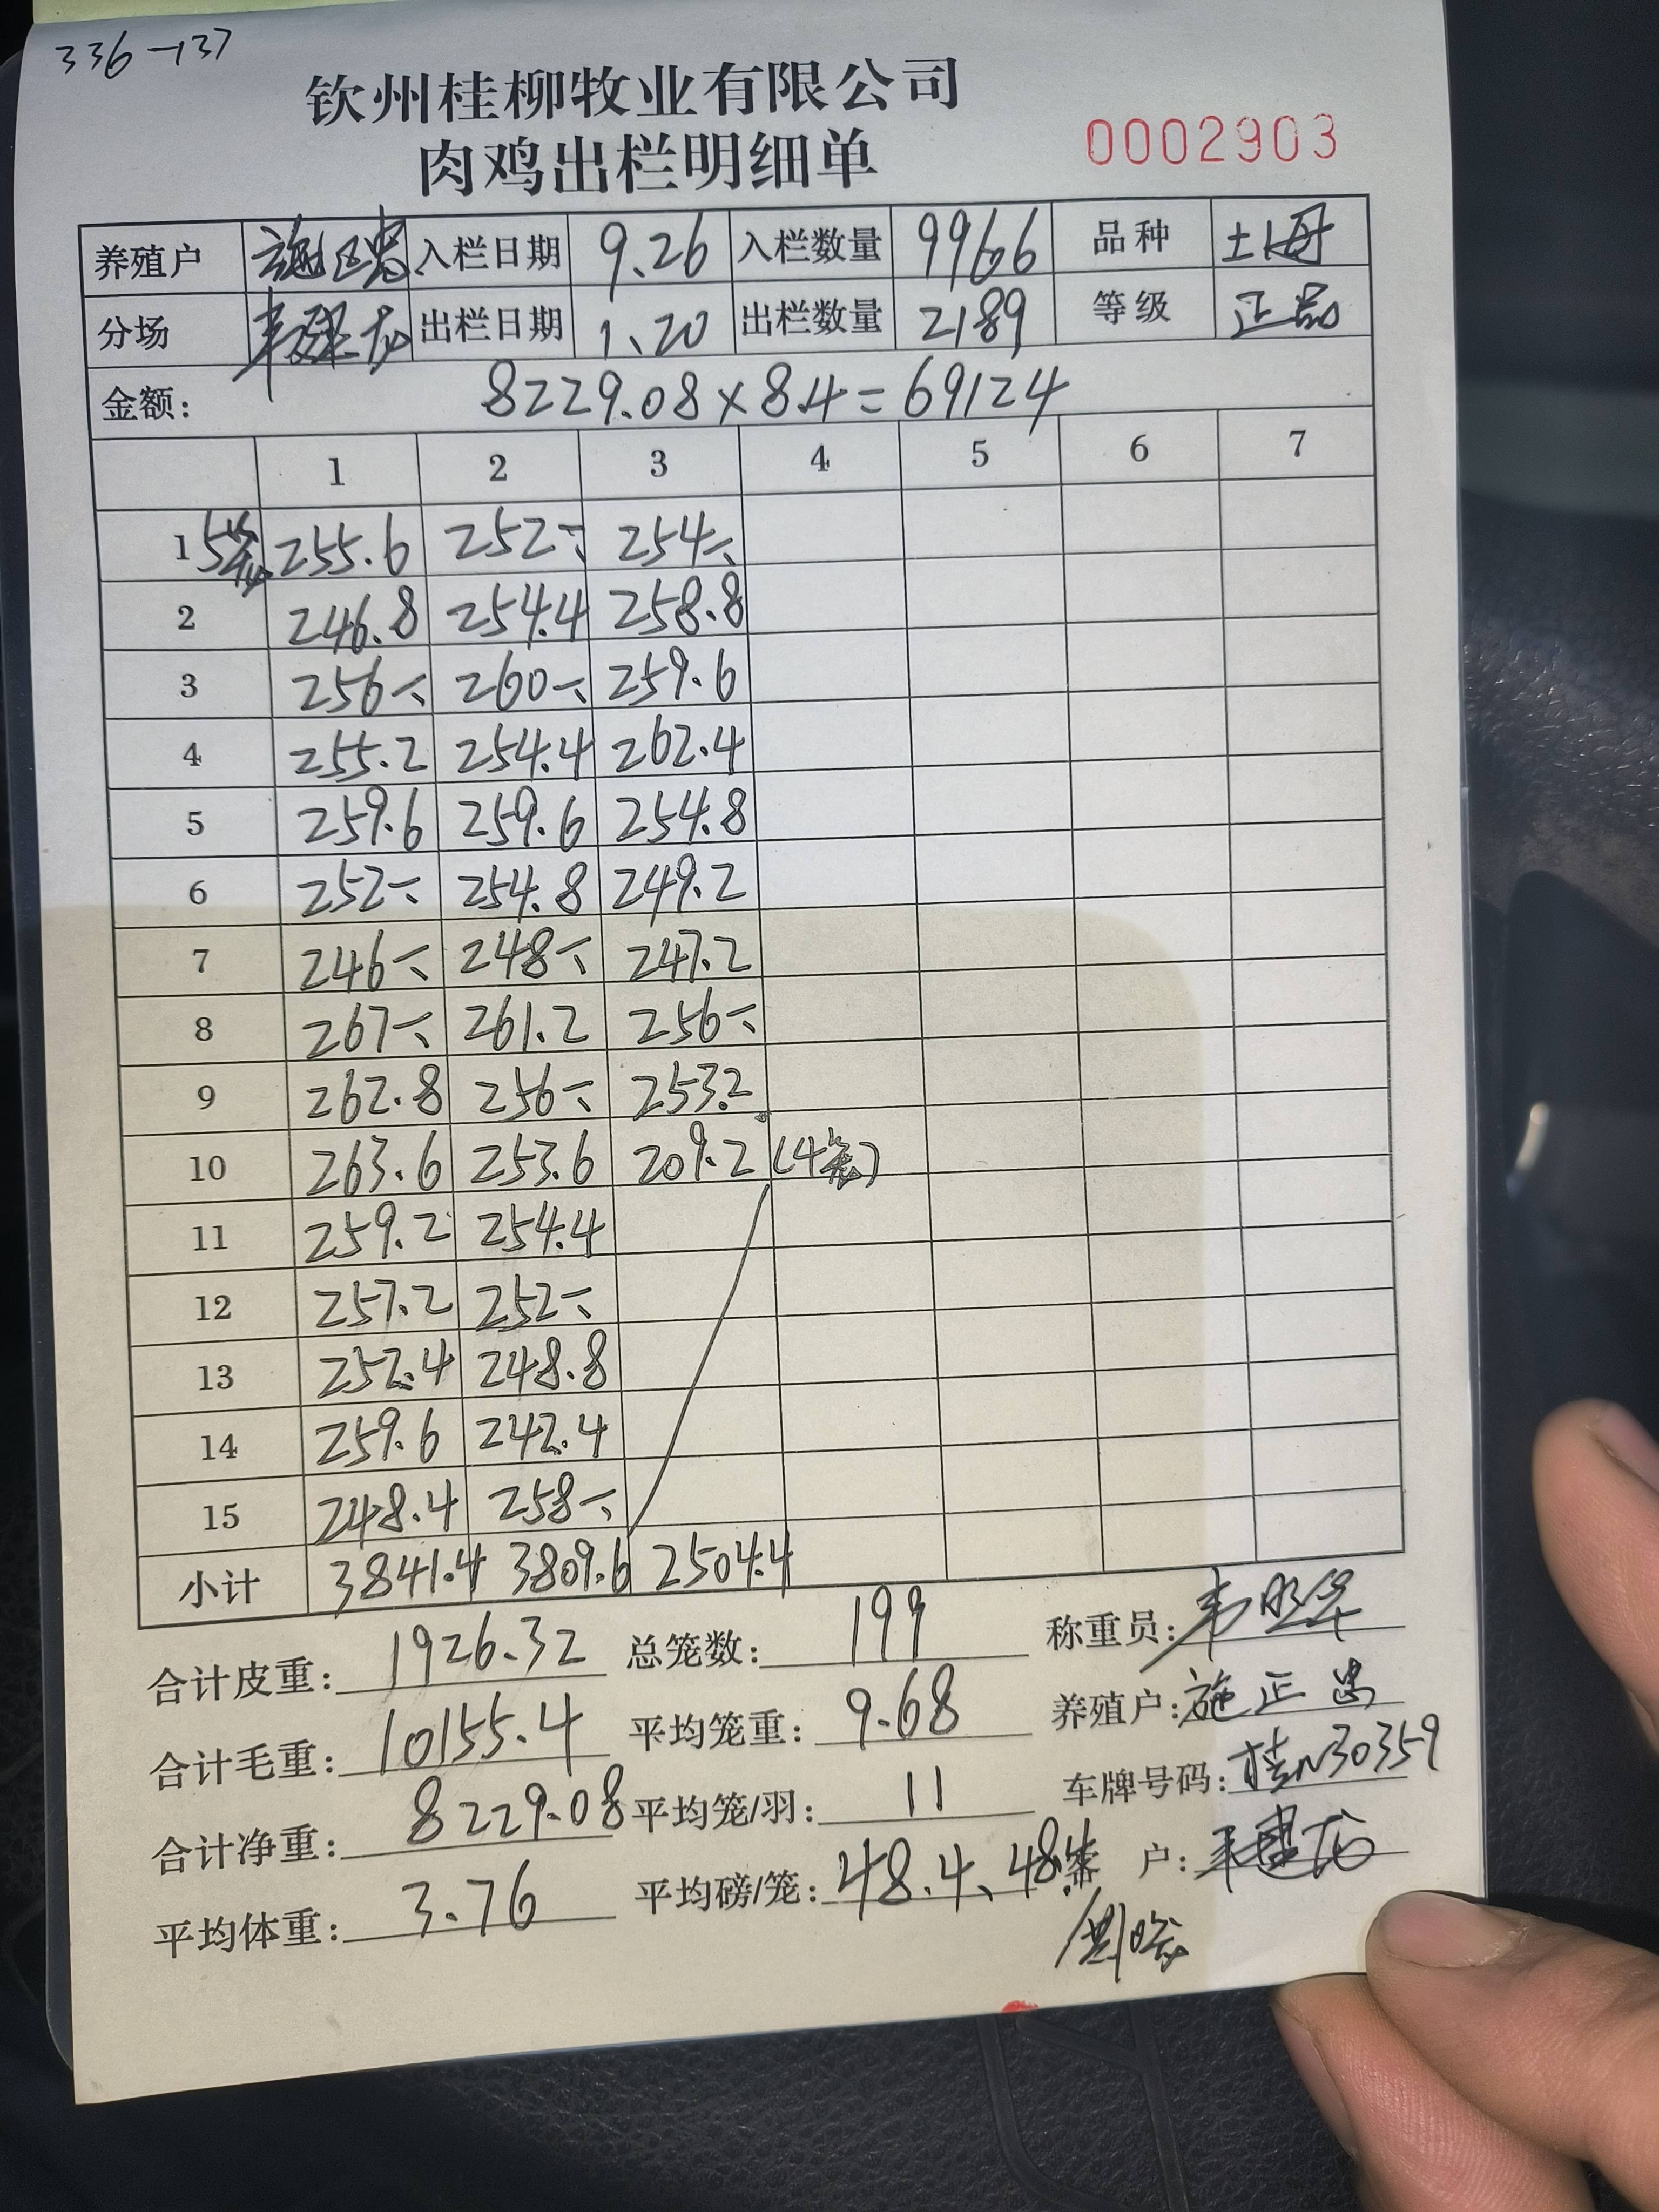 336-137
钦州桂柳牧业有限公司
肉鸡出栏明细单
0002903
养殖户 施正忠 入栏日期 9.26 入栏数量 9966 品种 土1母
分场 韦建龙 出栏日期 1、20 出栏数量 2189 等级 正品
金额: 8229.08×8.4=69124
1 2 3 4 5 6 7
1 5笼 255.6 252- 254-
2 246.8 254.4 258.8
3 256- 260- 259.6
4 255.2 254.4 262.4
5 259.6 259.6 254.8
6 252- 254.8 249.2
7 246- 248- 247.2
8 267- 261.2 256-
9 262.8 256- 253.2
10 263.6 253.6 209.2 (4笼)
11 259.2 254.4
12 257.2 252-
13 252.4 248.8
14 259.6 242.4
15 248.4 258-
小计 3841.4 3809.6 2504.4
合计皮重: 1926.32 总笼数: 199 称重员:
合计毛重: 10155.4 平均笼重: 9.68 养殖户: 施正忠
合计净重: 8229.08 平均笼/羽: 11 车牌号码: 桂N30359
平均体重: 3.76 平均磅/笼: 48.4、48. 户: 韦建龙